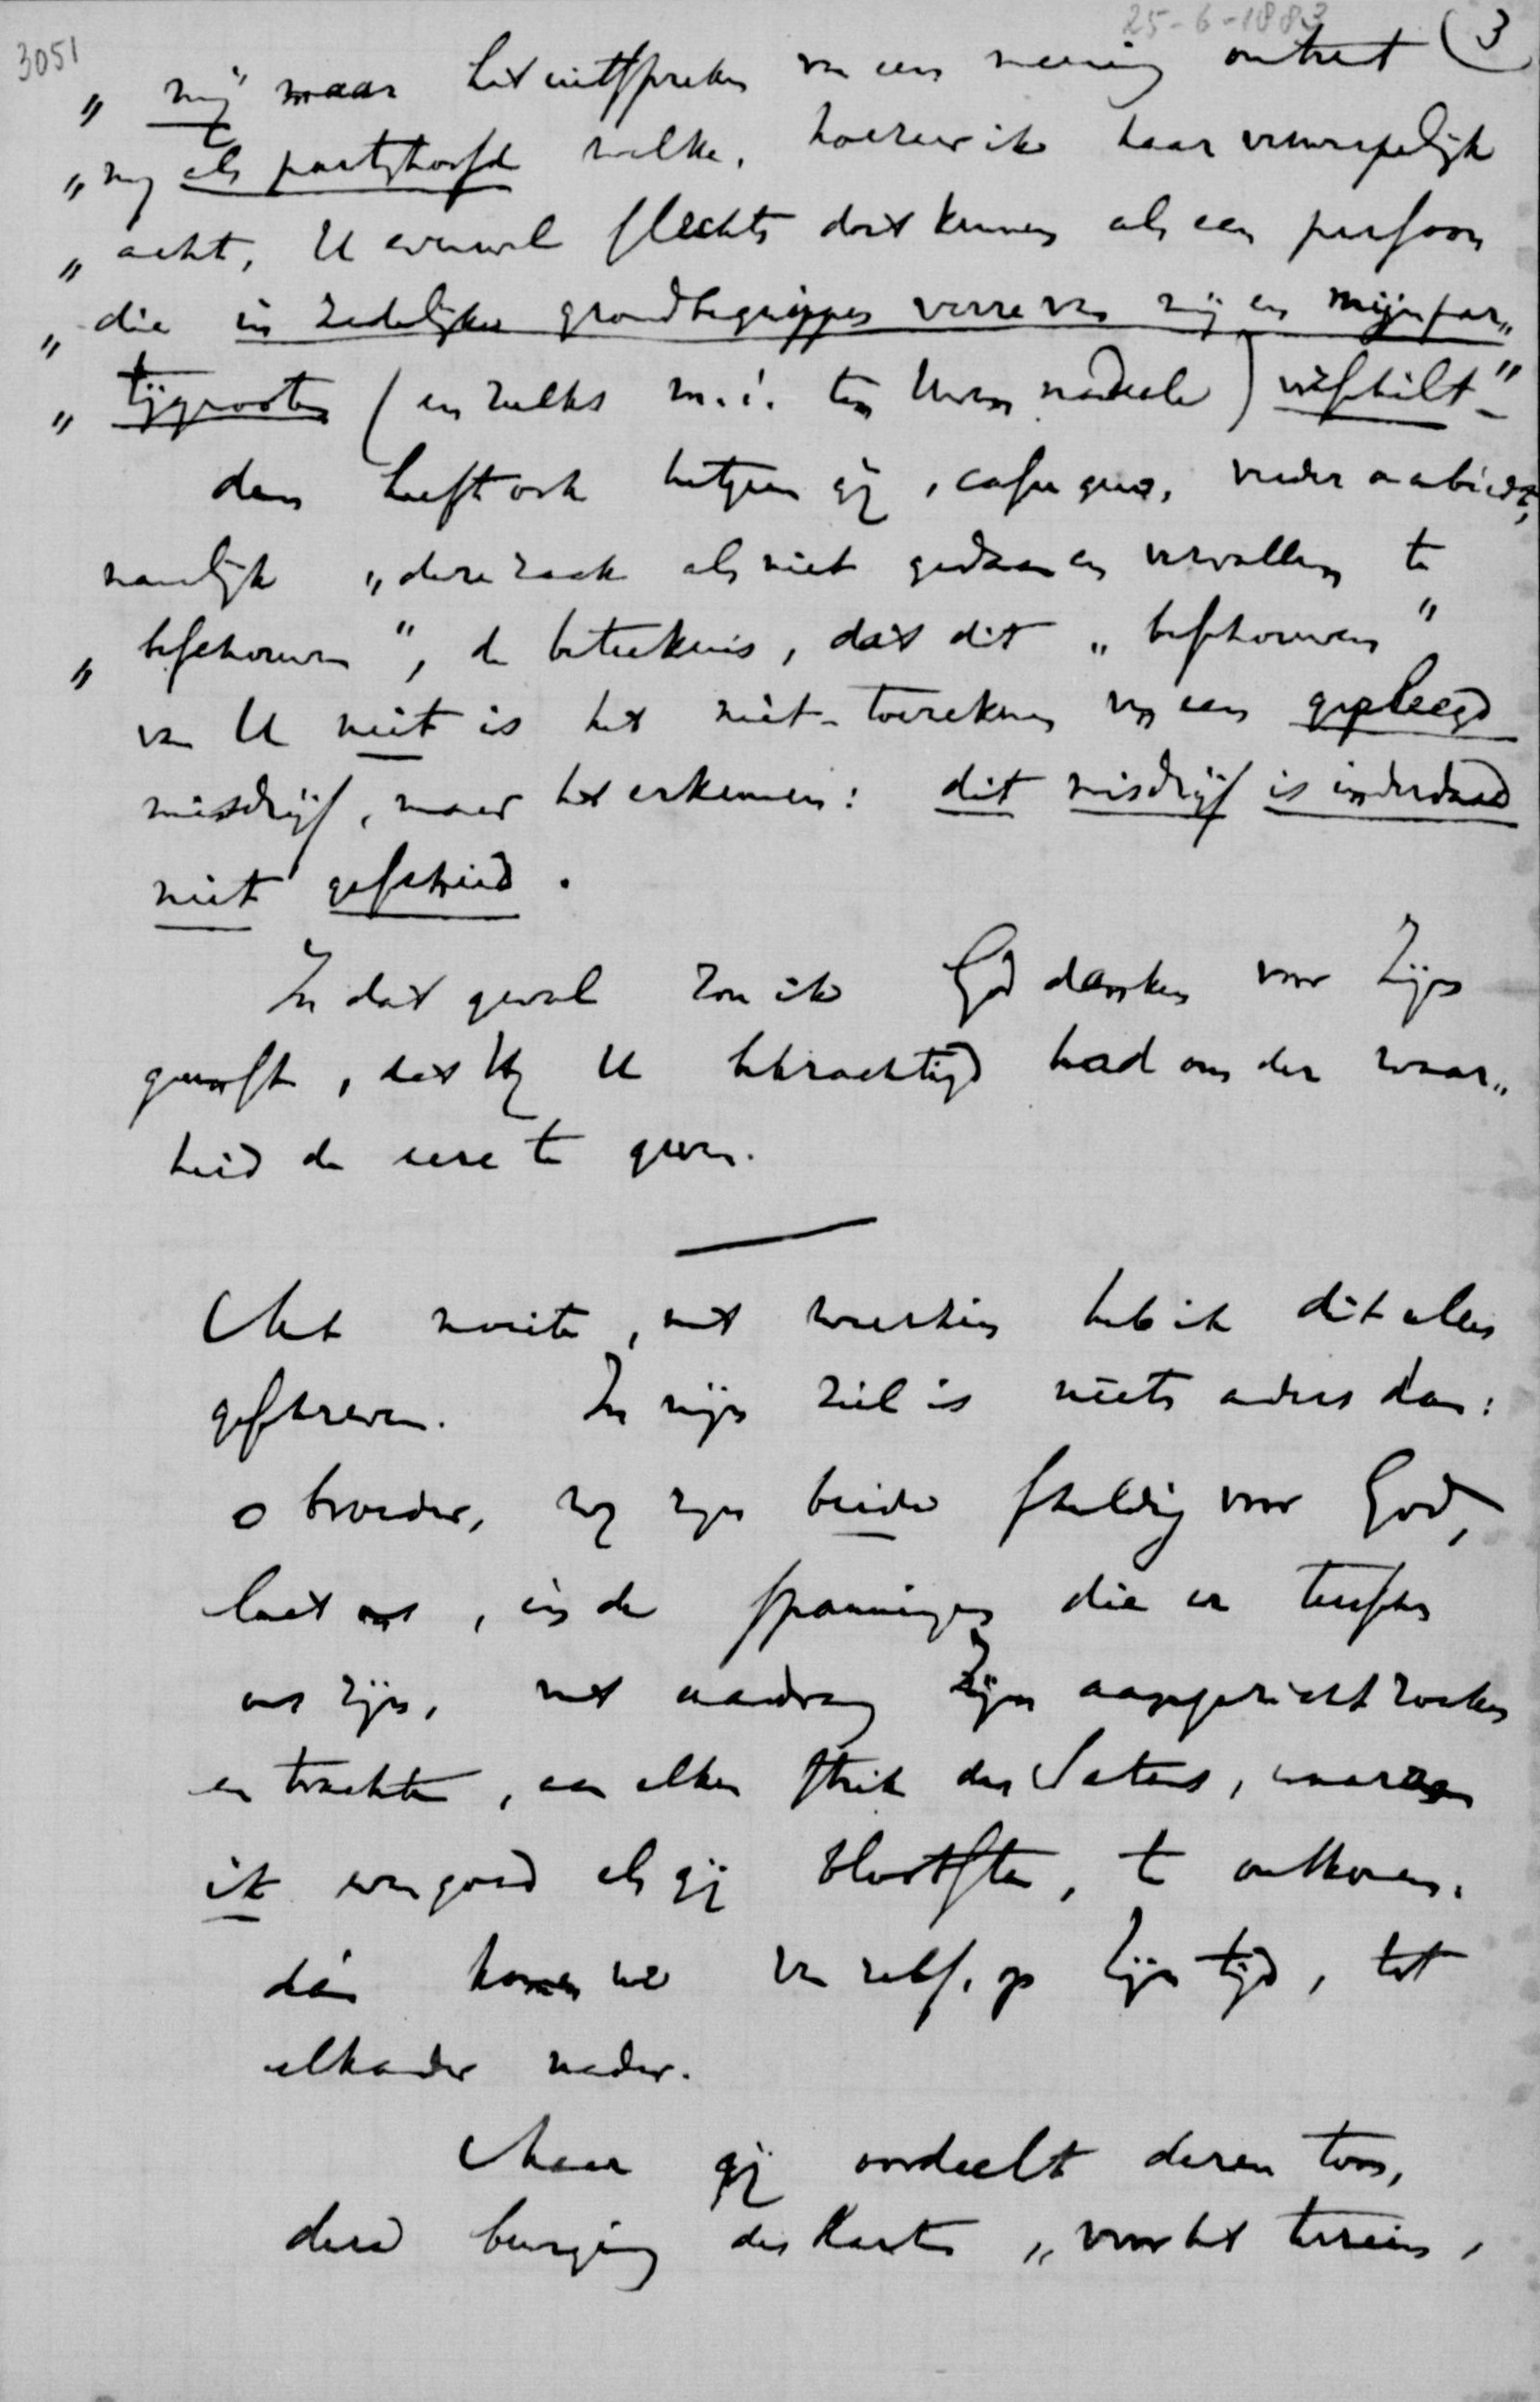 25-6-1883
3051
(3
„ mij" maar het uitspreken van een mening omtrent
„ mij als partijhoofd welke, hoezeer ik haar verwerpelijk
„ acht, U evenwel slechts doet kennen als een persoon
„ die in zedelijke grondbegrippen verre van mij en mijn par„
„ tijgenooten (en zulks m.i. ten Uwen nadeele) verschilt"-
dan heeft ook hetgeen gij, casu quo, verder aanbiedt,
namelijk „deze zaak als niet gedaan en vervallen te
„ beschouwen", de beteekenis, dat dit „beschouwen"
van U niet is het niet-toerekenen van een gepleegd
misdrijf, maar het erkennen: dit misdrijf is inderdaad
niet geschied.
In dat geval zou ik God danken voor Zijn
gunste, dat Hij U bekrachtigd had om der waar„
heid de eere te geven.
Met moeite, met worsteling heb ik dit alles
geschreven. In mijn ziel is niets anders dan:
o broeder, wij zijn beide schuldig voor God,
laat ons, in de spanningen die er tusschen
ons zijn, met aandrang Zijn aangezicht zoeken
en trachten, aan elken strik des Satans, waaraan
ik even goed als gij blootsta, te ontkomen.
dán komen we van zelf, op Zijn tijd, tot
elkander nader.
Maar gij oordeelt dezen toon,
deze beweging des harten „voor het terrein,